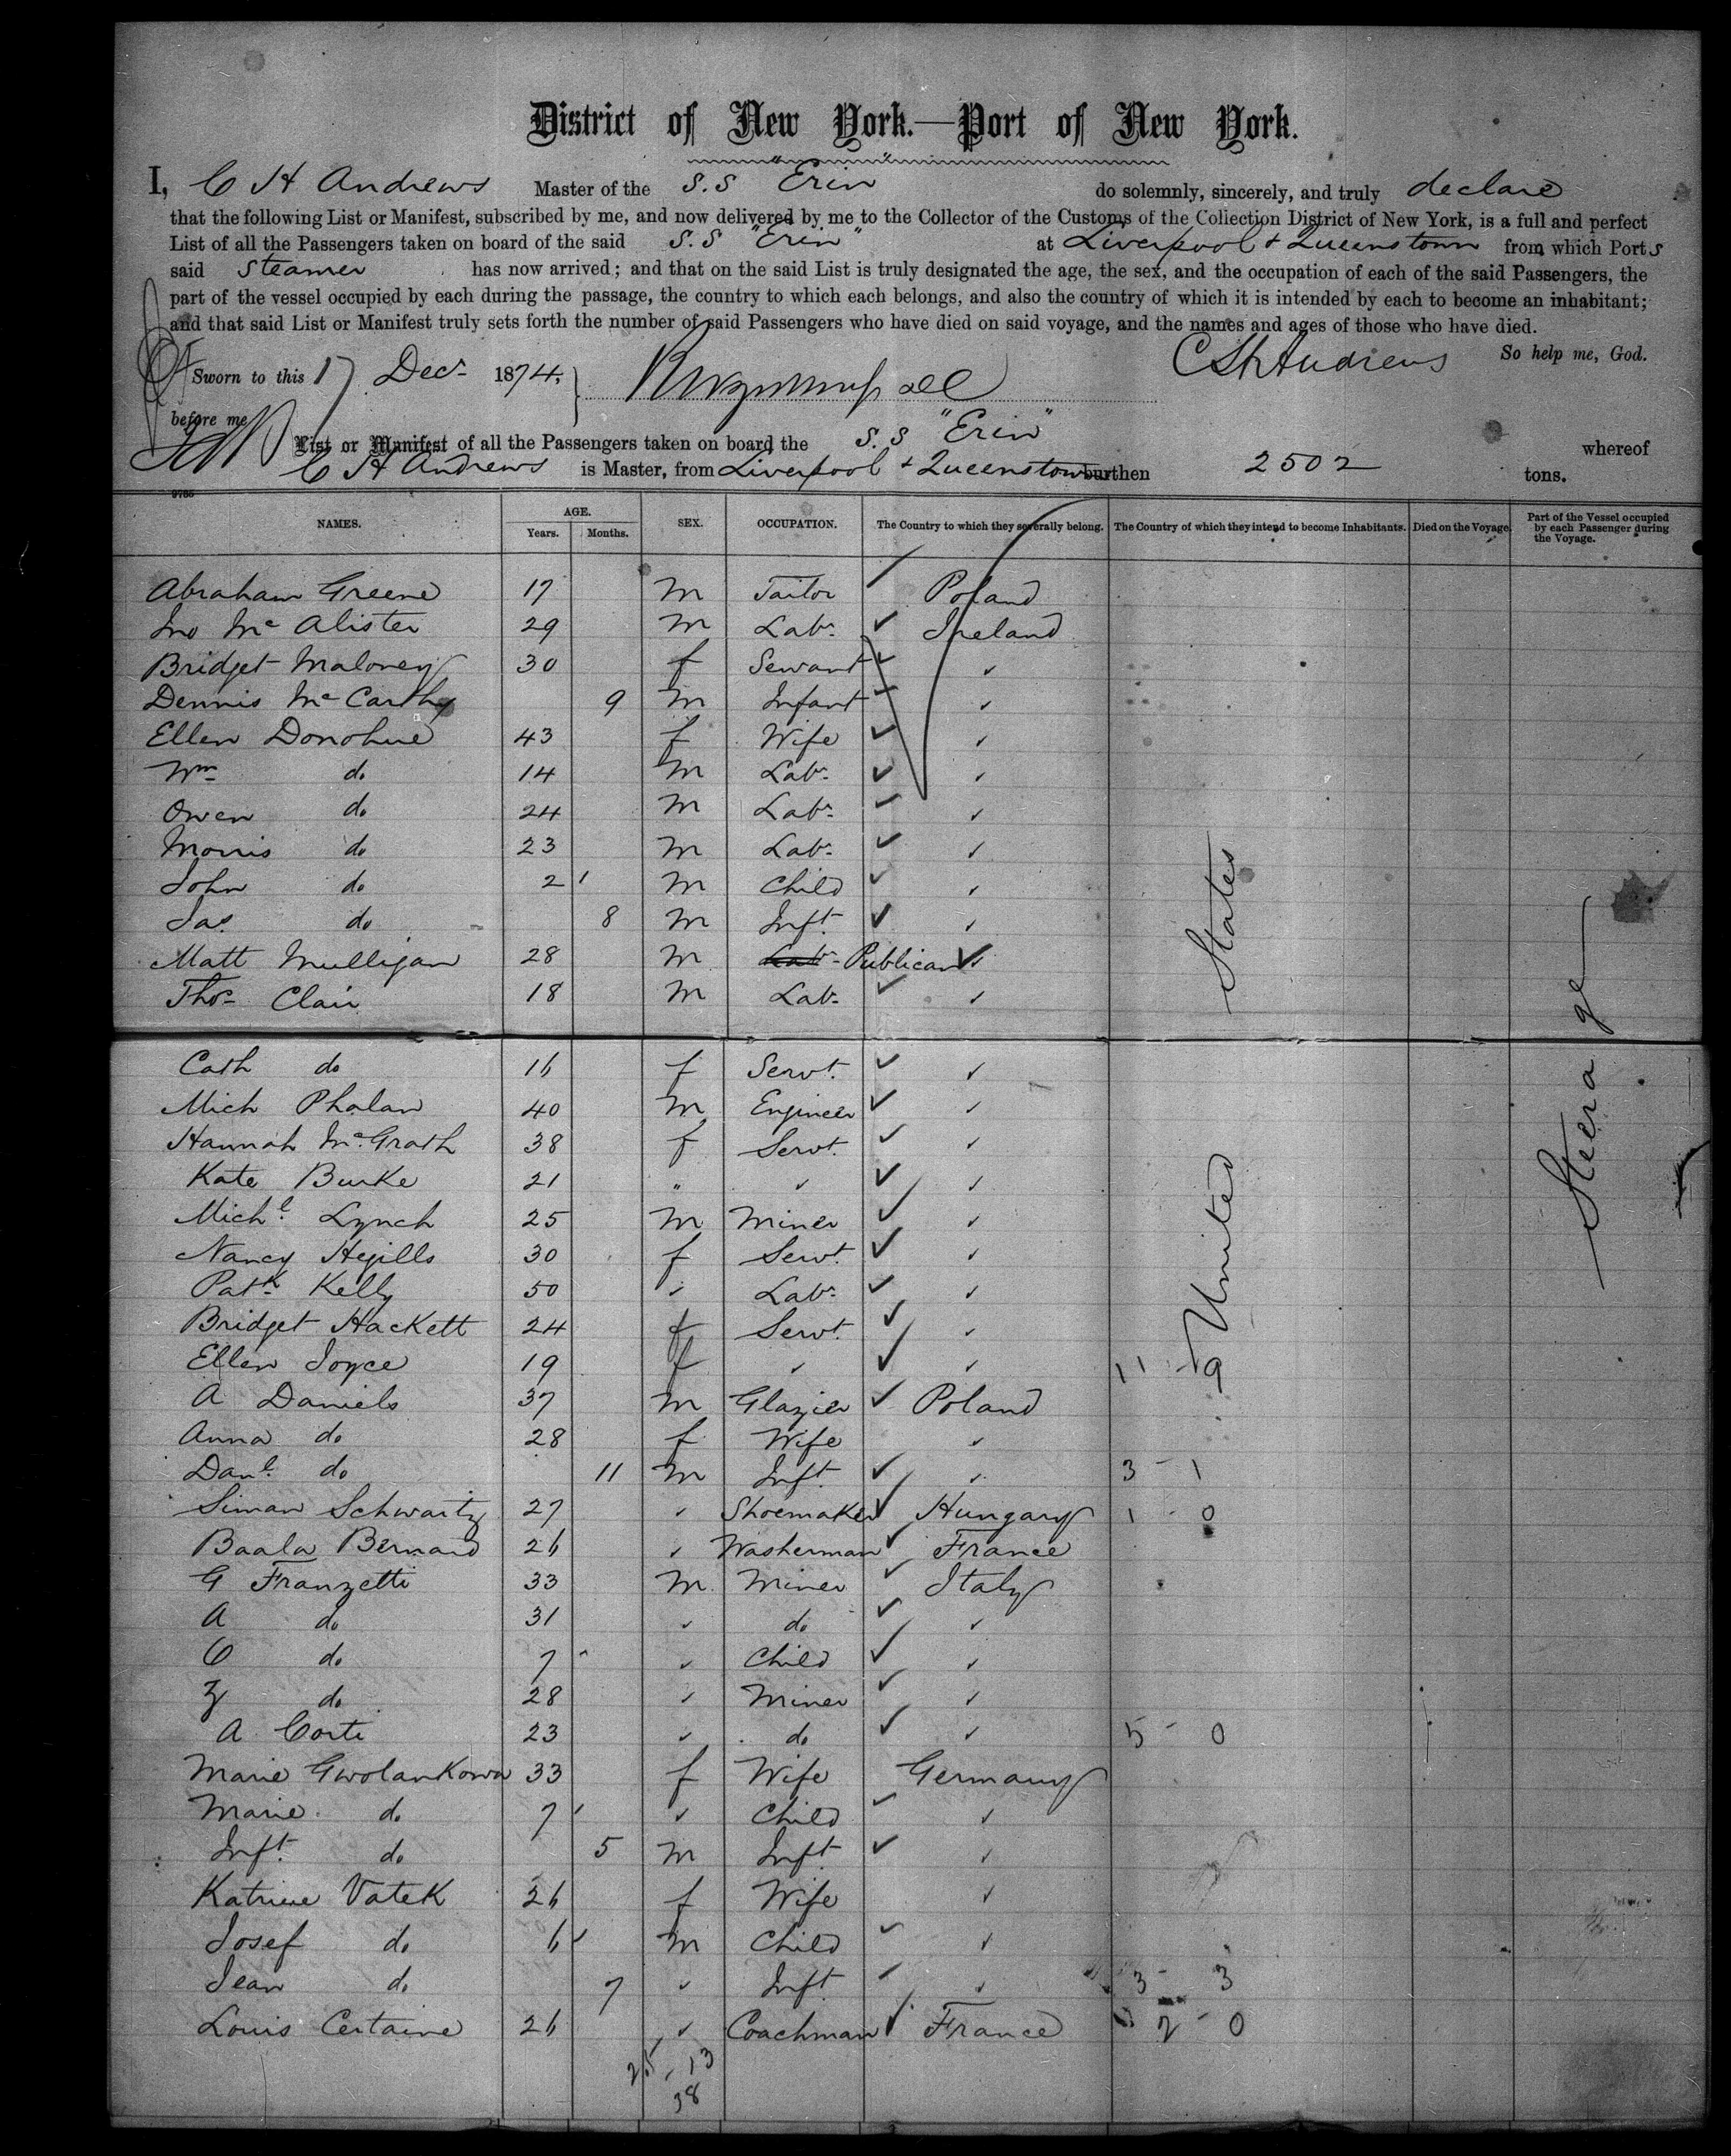 District of New York.—Port of New York.
I, C H Andrews Master of the S.S "Erin" do solemnly, sincerely, and truly declare
that the following List or Manifest, subscribed by me, and now delivered by me to the Collector of the Customs of the Collection District of New York, is a full and perfect
List of all the Passengers taken on board of the said S.S "Erin" at Liverpool & Queenstown from which Ports
said Steamer has now arrived; and that on the said List is truly designated the age, the sex, and the occupation of each of the said Passengers, the
part of the vessel occupied by each during the passage, the country to which each belongs, and also the country of which it is intended by each to become an inhabitant;
and that said List or Manifest truly sets forth the number of said Passengers who have died on said voyage, and the names and ages of those who have died.
So help me, God.
Sworn to this 17 Decr 1874, C H Andrews
before me
List or Manifest of all the Passengers taken on board the S.S "Erin" whereof
C H Andrews is Master, from Liverpool & Queenstown burthen 2502 tons.
9786
NAMES. AGE. Years. Months. SEX. OCCUPATION. The Country to which they severally belong. The Country of which they intend to become Inhabitants. Died on the Voyage. Part of the Vessel occupied by each Passenger during the Voyage.
Abraham Greene 17 M Tailor Poland
Jno McAlister 29 M Labr Ireland
Bridget Maloney 30 f Servant ✓
Dennis McCarthy 9 M Infant ✓
Ellen Donohue 43 f Wife ✓
Wm do 14 M Labr ✓
Owen do 24 M Labr ✓
Morris do 23 M Labr ✓
John do 2 M Child ✓
Jas do 8 M Inft ✓
Matt Mulligan 28 M Labr Publican ✓
Thos Clair 18 M Labr ✓
Cath do 16 f Servt. ✓
Mich Phalan 40 M Engineer ✓
Hannah McGrath 38 f Servt. ✓
Kate Burke 21 " ✓ ✓
Michl Lynch 25 M Miner ✓
Nancy Hegills 30 f Servt. ✓
Patk Kelly 50 ✓ Labr ✓
Bridget Hackett 24 f Servt. ✓
Ellen Joyce 19 f ✓ ✓ 11 - 9
A Daniels 37 M Glazier Poland
Anna do 28 f Wife ✓
Danl do 11 M Inft ✓ 3 - 1
Siman Schwartz 27 ✓ Shoemaker Hungary 1 - 0
Baala Bernard 26 ✓ Washerman France
G Franzetti 33 M Miner Italy
A do 31 ✓ do ✓
C do 7 ✓ Child ✓
Z do 28 ✓ Miner ✓
A Corti 23 ✓ do ✓ 5 - 0
Marie Gwolankowa 33 f Wife Germany
Marie do 7 ✓ Child ✓
Inft do 5 M Inft ✓
Katrine Vatek 26 f Wife ✓
Josef do 6 M Child ✓
Jean do 7 ✓ Inft ✓ 3 - 3
Louis Certaine 26 ✓ Coachman France 2 - 0
25 , 13
38
United States
Steerage